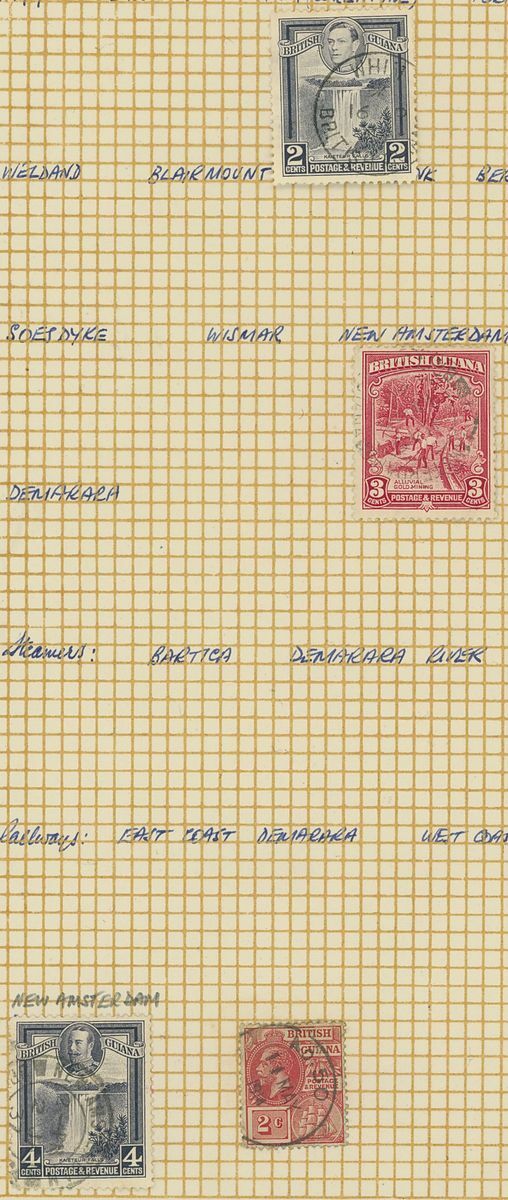 BRITISH GUIANA
WHIT
16
BRIT
KAIETEUR FALLS
2 CENTS POSTAGE & REVENUE 2 CENTS
WELDAND BLAIRMOUNT NK BER
SOESDYKE WISMAR NEW AMSTERDAM
BRITISH GUIANA
ALLUVIAL
GOLD MINING
3 CENTS POSTAGE & REVENUE 3 CENTS
DEMARARA
Steamers: BARTICA DEMARARA RIVER
Railways: EAST COAST DEMARARA WEST COAS
NEW AMSTERDAM
BRITISH GUIANA
KAIETEUR FALLS
4 CENTS POSTAGE & REVENUE 4 CENTS
BRITISH
GUIANA
POSTAGE
&
REVENUE
2c